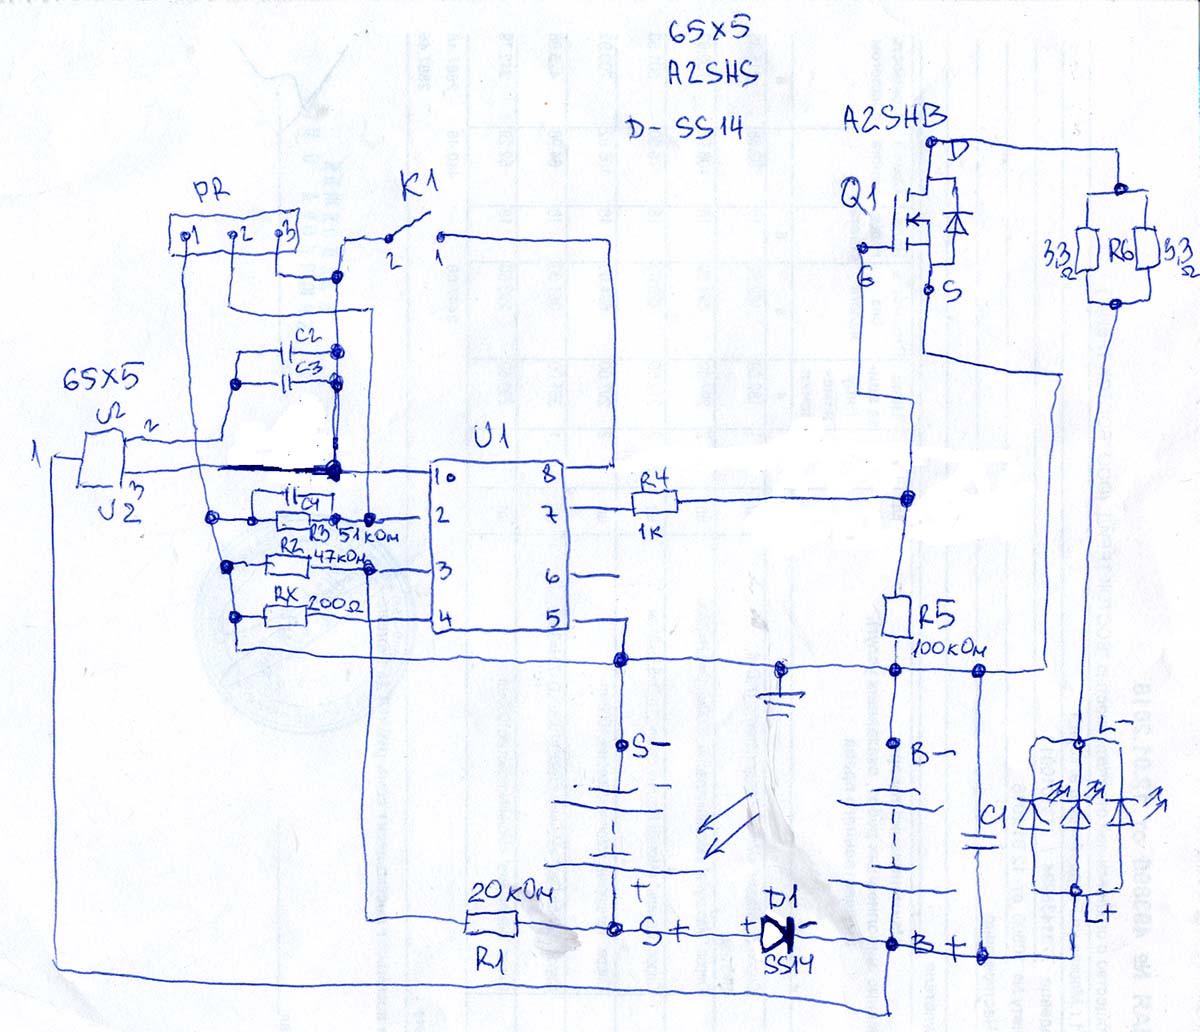 65x5
A2SHS
D- SS14
A2SHB
D
PR
K1
Q1
1 2 3
2 1
G
S
3,3
Ω
R6
3,3
Ω
C2
C3
65x5
U2
2
1
3
U2
U1
1
8
R4
C4
2
7
1K
R3 51кОм
R2
47кОм
3
6
RX
200Ω
4
5
R5
100кОм
S-
B-
L-
-
C1
+
20кОм
D1
L+
R1
S+
+
-
B+
SS14